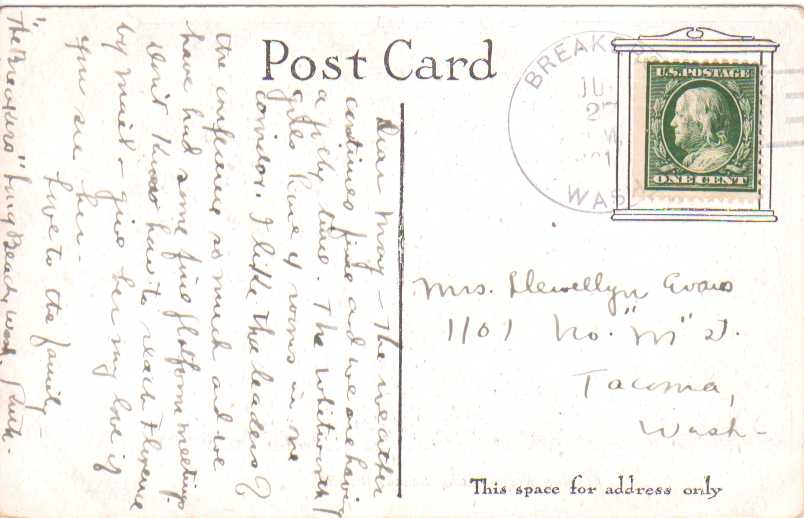 Post Card
Dear May - The weather
continues fine and we are having
a jolly time. The Whitworth
girls have 4 rooms in one
corridor. I like the leaders of
the conference so much and we
have had some fine platform meetings
Don't know how to reach Florence
by mail - give her my love if
you see her -
Love to the family -
Ruth.
"The Breakers" Long Beach, Wash.
BREAKERS
JU
27
WASH
U.S. POSTAGE
ONE CENT
Mrs. Llewellyn Evans
1101 No. "M" St.
Tacoma,
Wash -
This space for address only